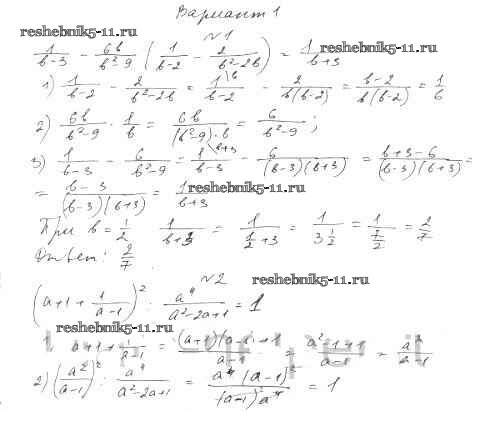 Вариант 1
reshebnik5-11.ru
№1
1/(b-3) - 6b/(b²-9) (1/(b-2) - 2/(b²-2b)) = 1/(b+3)
reshebnik5-11.ru
1) 1/(b-2) - 2/(b²-2b) = 1\b/(b-2) - 2/(b(b-2)) = (b-2)/(b(b-2)) = 1/b
2) 6b/(b²-9) · 1/b = 6b/((b²-9)·b) = 6/(b²-9);
3) 1/(b-3) - 6/(b²-9) = 1\b+3/(b-3) - 6/((b-3)(b+3)) = (b+3-6)/((b-3)(b+3)) =
= (b-3)/((b-3)(b+3)) = 1/(b+3)
reshebnik5-11.ru
При b = 1/2 1/(b+3) = 1/(1/2+3) = 1/(3 1/2) = 1/(7/2) = 2/7
Ответ: 2/7.
№2
reshebnik5-11.ru
(a+1+1/(a-1))² : a⁴/(a²-2a+1) = 1
reshebnik5-11.ru
1 a+1+1/(a-1) = ((a+1)(a-1)+1)/(a-1) = (a²-1+1)/(a-1) = a²/(a-1)
2) (a²/(a-1))² : a⁴/(a²-2a+1) = a⁴(a-1)²/((a-1)²a⁴) = 1